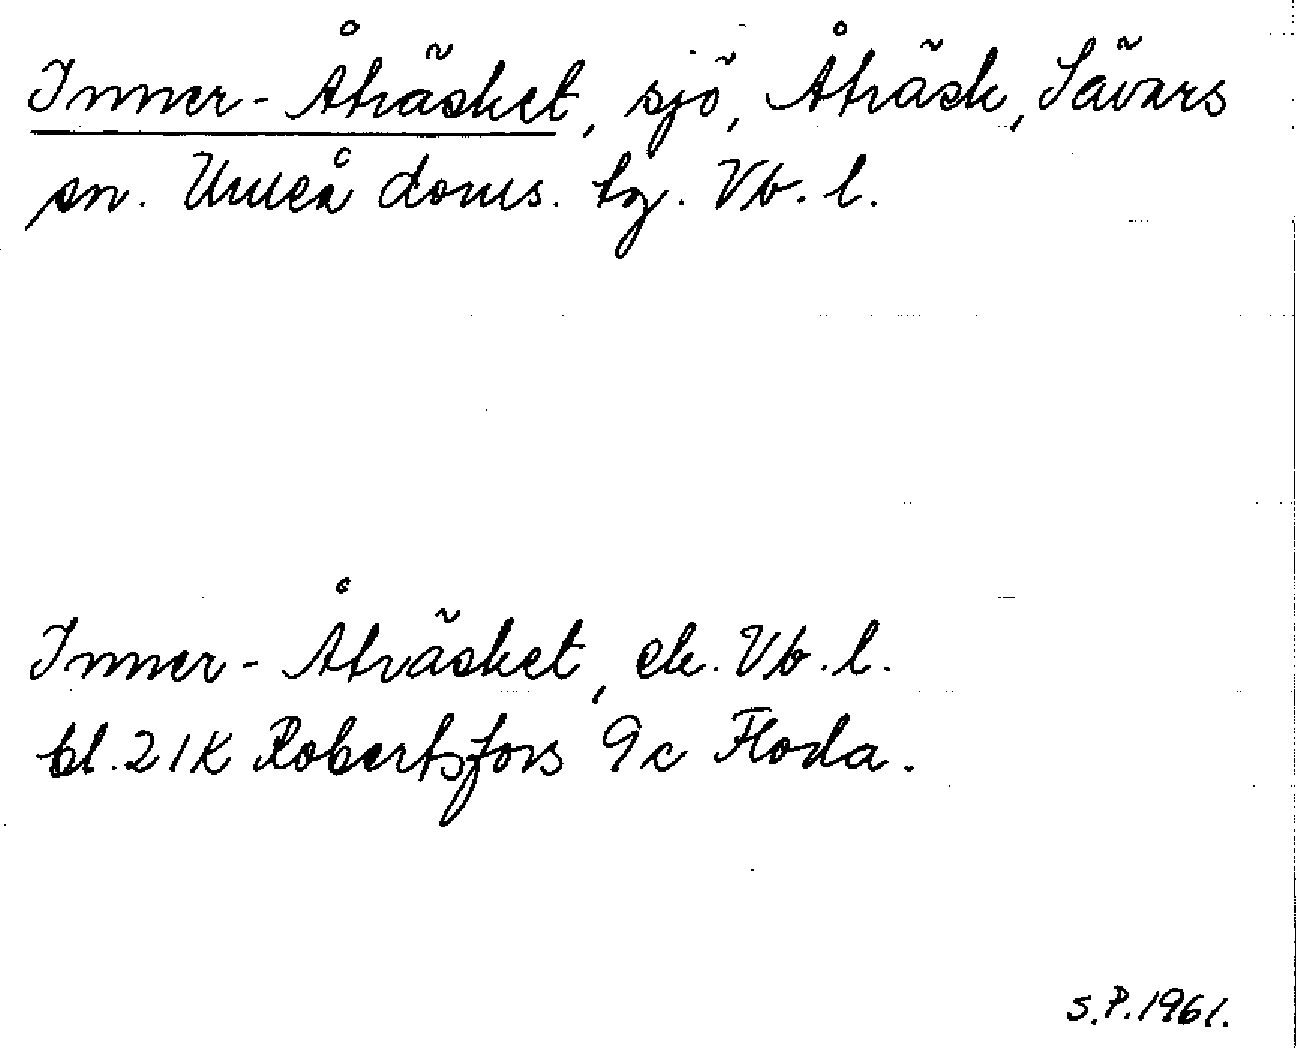 Inner-Åträsket, sjö, Åträsk, Sävars
sn. Umeå doms. tg. Vb. l.
Inner-Åträsket, ek. Vb. l.
bl. 21K Robertsfors 9c Floda.
S.P. 1961.